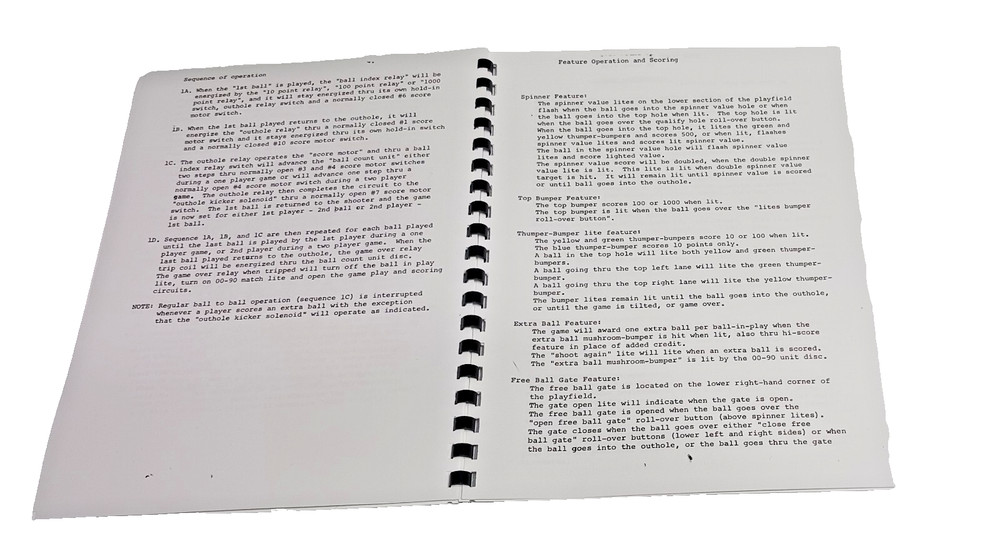 Sequence of operation
1A. When the "1st ball" is played, the "ball index relay" will be
energized by the "10 point relay", "100 point relay" or "1000
point relay", and it will stay energized thru its own hold-in
switch, outhole relay switch and a normally closed #6 score
motor switch.
1B. When the 1st ball played returns to the outhole, it will
energize the "outhole relay" thru a normally closed #1 score
motor switch and it stays energized thru its own hold-in switch
and a normally closed #10 score motor switch.
1C. The outhole relay operates the "score motor" and thru a ball
index relay switch will advance the "ball count unit" either
two steps thru normally open #3 and #4 score motor switches
during a one player game or will advance one step thru a
normally open #4 score motor switch during a two player
game. The outhole relay then completes the circuit to the
"outhole kicker solenoid" thru a normally open #7 score motor
switch. The 1st ball is returned to the shooter and the game
is now set for either 1st player - 2nd ball or 2nd player -
1st ball.
1D. Sequence 1A, 1B, and 1C are then repeated for each ball played
until the last ball is played by the 1st player during a one
player game, or 2nd player during a two player game. When the
last ball played returns to the outhole, the game over relay
trip coil will be energized thru the ball count unit disc.
The game over relay when tripped will turn off the ball in play
lite, turn on 00-90 match lite and open the game play and scoring
circuits.
NOTE: Regular ball to ball operation (sequence 1C) is interrupted
whenever a player scores an extra ball with the exception
that the "outhole kicker solenoid" will operate as indicated.
Feature Operation and Scoring
Spinner Feature:
The spinner value lites on the lower section of the playfield
flash when the ball goes into the spinner value hole or when
the ball goes into the top hole when lit. The top hole is lit
when the ball goes over the qualify hole roll-over button.
When the ball goes into the top hole, it lites the green and
yellow thumper-bumpers and scores 500, or when lit, flashes
spinner value lites and scores lit spinner value.
The ball in the spinner value hole will flash spinner value
lites and score lighted value.
The spinner value score will be doubled, when the double spinner
value lite is lit. This lite is lit when double spinner value
target is hit. It will remain lit until spinner value is scored
or until ball goes into the outhole.
Top Bumper Feature:
The top bumper scores 100 or 1000 when lit.
The top bumper is lit when the ball goes over the "lites bumper
roll-over button".
Thumper-Bumper lite feature:
The yellow and green thumper-bumpers score 10 or 100 when lit.
The blue thumper-bumper scores 10 points only.
A ball in the top hole will lite both yellow and green thumper-
bumpers.
A ball going thru the top left lane will lite the green thumper-
bumper.
A ball going thru the top right lane will lite the yellow thumper-
bumper.
The bumper lites remain lit until the ball goes into the outhole,
or until the game is tilted, or game over.
Extra Ball Feature:
The game will award one extra ball per ball-in-play when the
extra ball mushroom-bumper is hit when lit, also thru hi-score
feature in place of added credit.
The "shoot again" lite will lite when an extra ball is scored.
The "extra ball mushroom-bumper" is lit by the 00-90 unit disc.
Free Ball Gate Feature:
The free ball gate is located on the lower right-hand corner of
the playfield.
The gate open lite will indicate when the gate is open.
The free ball gate is opened when the ball goes over the
"open free ball gate" roll-over button (above spinner lites).
The gate closes when the ball goes over either "close free
ball gate" roll-over buttons (lower left and right sides) or when
the ball goes into the outhole, or the ball goes thru the gate